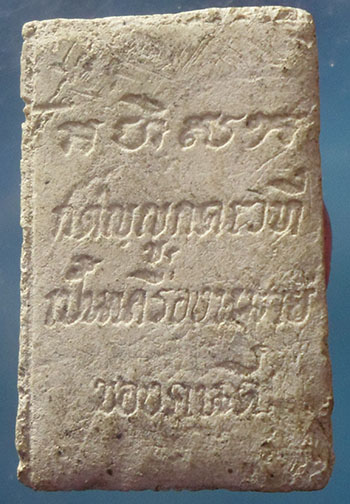 กตัญญูกตเวที
เป็นเครื่องหมาย
ของคนดี